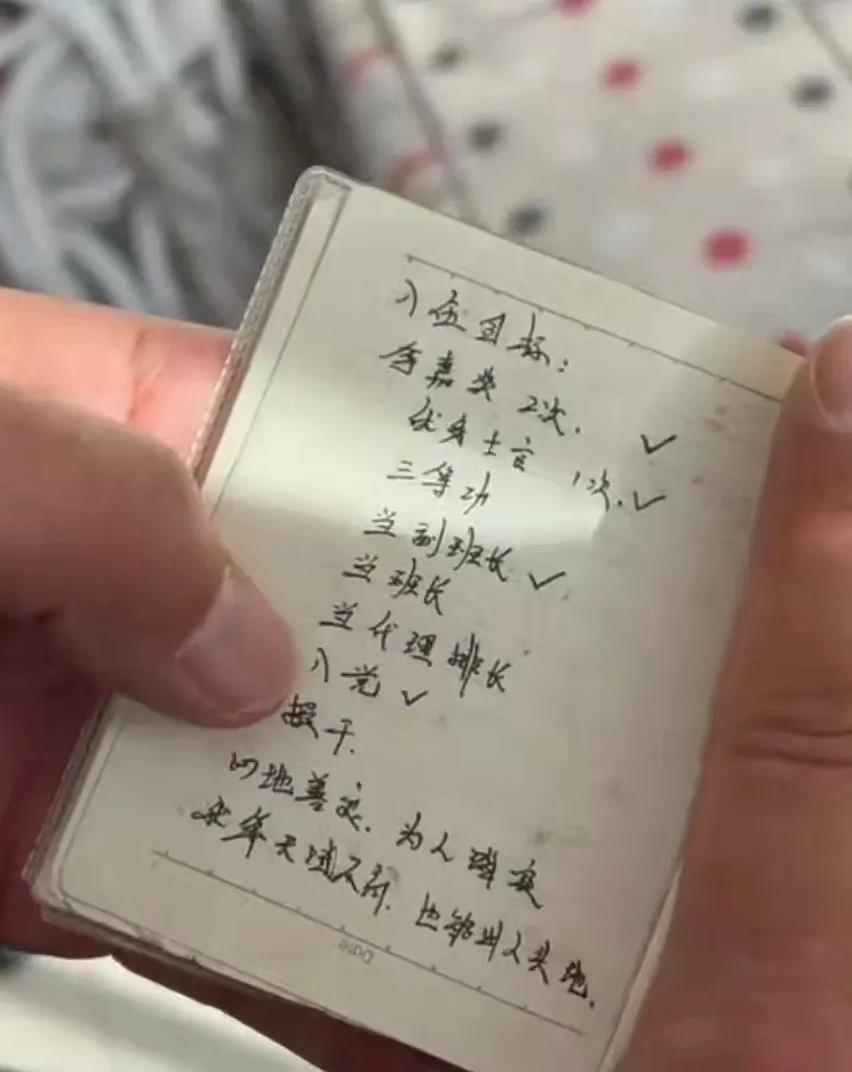 入伍目标:
嘉奖 2次. ✓
优秀士官 1次. ✓
三等功
当副班长 ✓
当班长
当代理排长
入党 ✓
提干.
心地善良. 为人踏实
出人头地.
Date